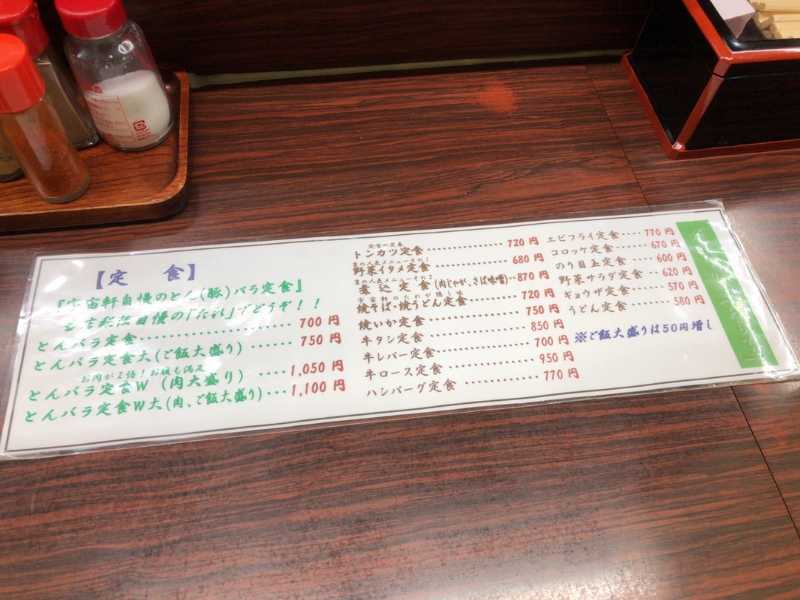 【定 食】
『宇宙軒自慢のとん(豚)バラ定食』
自慢の「たれ」でどうぞ！！
とんバラ定食 700 円
とんバラ定食大(ご飯大盛り) 750 円
お肉が2倍！お腹も満足
とんバラ定食W (肉大盛り) 1,050 円
とんバラ定食W大(肉、ご飯大盛り) 1,100 円
トンカツ定食 720 円
野菜イタメ定食 680 円
煮込定食(肉じゃが、さば味噌) 870 円
焼そば・焼うどん定食 720 円
焼いか定食 750 円
牛タシ定食 850 円
牛レバー定食 700 円
牛ロース定食 950 円
ハンバーグ定食 770 円
エビフライ定食 770 円
コロッケ定食 670 円
のり目玉定食 600 円
野菜サラダ定食 620 円
ギョウザ定食 570 円
うどん定食 580 円
※ご飯大盛りは50円増し